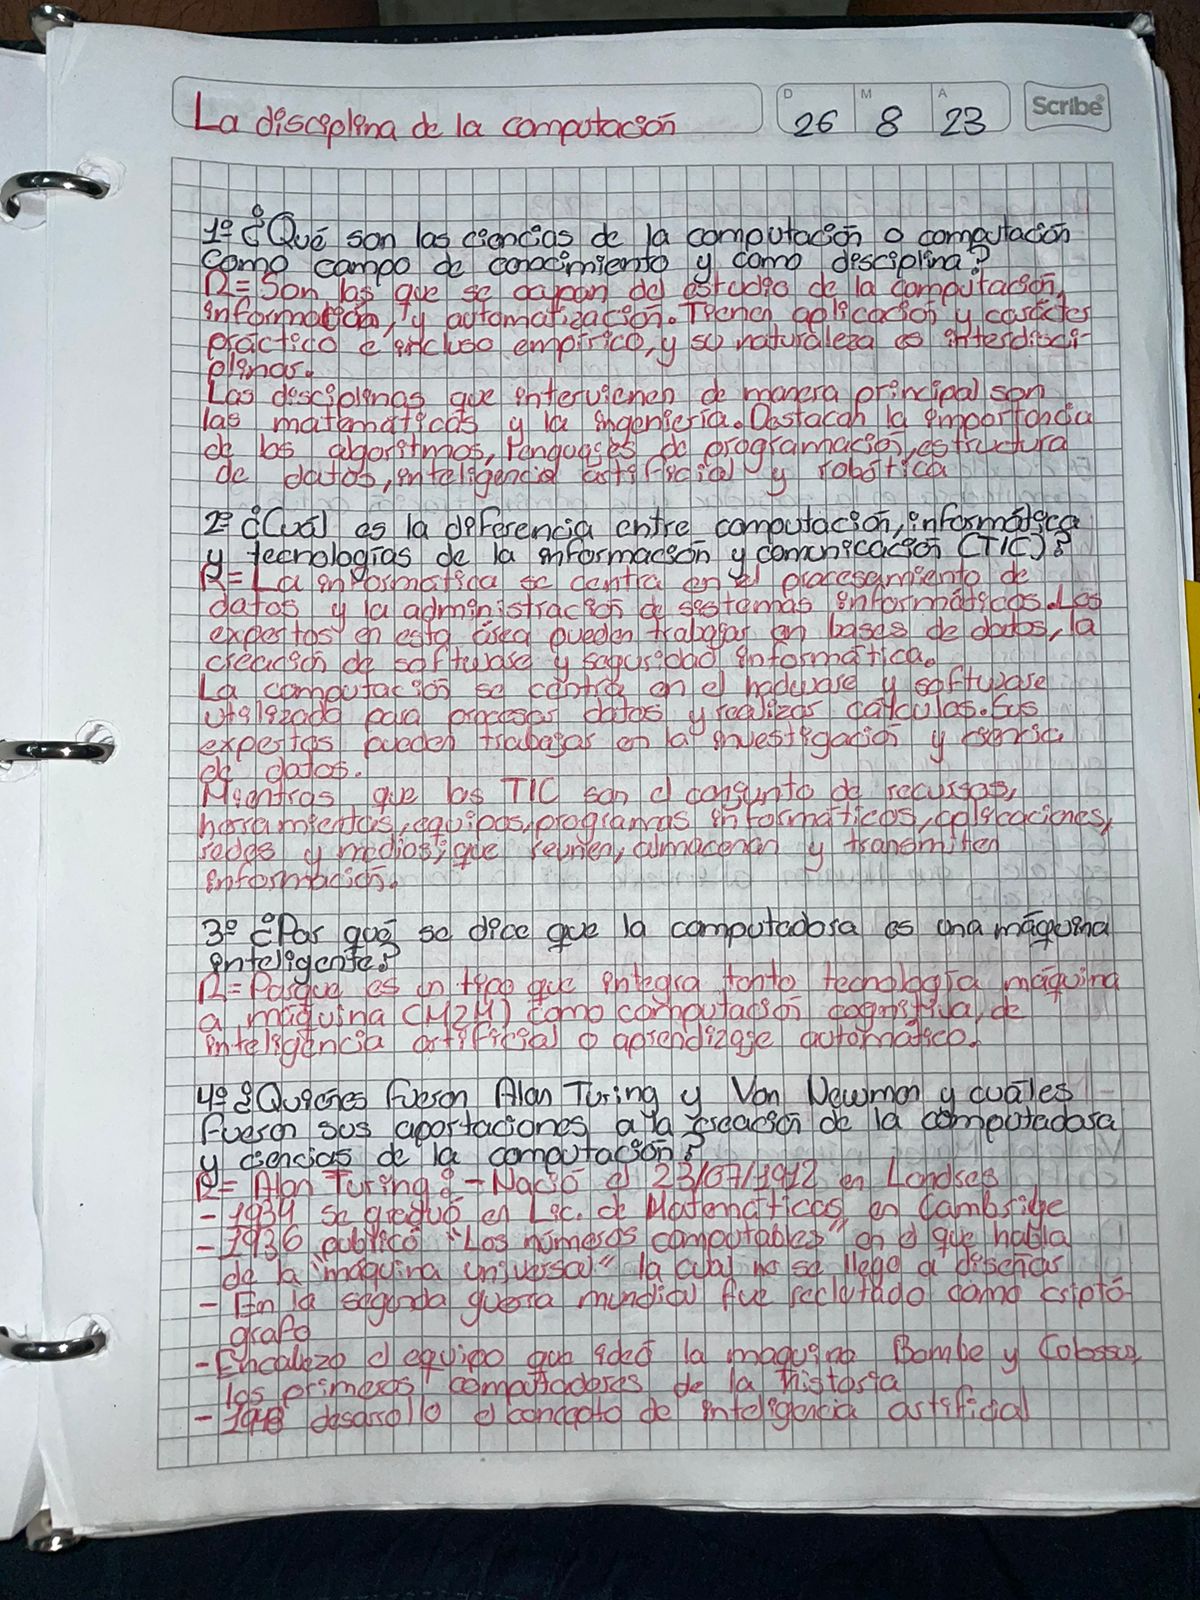 La disciplina de la computación
D 26 M 8 A 23
Scribe
1º ¿Qué son las ciencias de la computación o computación
como campo de conocimiento y como disciplina?
R= Son las que se ocupan del estudio de la computación,
información, y automatización. Tienen aplicación y carácter
práctico e incluso empírico, y su naturaleza es interdisci-
plinar.
Las disciplinas que intervienen de manera principal son
las matemáticas y la ingeniería. Destacan la importancia
de los algoritmos, lenguajes de programación, estructura
de datos, inteligencia artificial y robótica
2º ¿Cuál es la diferencia entre computación, informática
y tecnologías de la información y comunicación (TIC)?
R= La informática se centra en el procesamiento de
datos y la administración de sistemas informáticos. Los
expertos en esta área pueden trabajar en bases de datos, la
creación de software y seguridad informática.
La computación se centra en el hadware y software
utilizado para procesar datos y realizar cálculos. Sus
expertos pueden trabajar en la investigación y
de datos.
Mientras que las TIC son el conjunto de recursos,
herramientas, equipos, programas informáticos, aplicaciones,
redes y medios; que reunen, almacenan y transmiten
información.
3º ¿Por qué se dice que la computadora es una máquina
inteligente?
R= Porque es un tipo que integra tanto tecnología máquina
a máquina (M2M) como computación cognitiva, de
inteligencia artificial o aprendizaje automático.
4º ¿Quienes fueron Alan Turing y Von Newman y cuáles
fueron sus aportaciones a la creación de la computadora
y ciencias de la computación?
R= Alan Turing: - Nació el 23/07/1912 en Londres
- 1934 se graduó en Lic. de Matemáticas en Cambrige
- 1936 público "Los números computables" en el que habla
de la "máquina universal" la cual no se llego a diseñar
- En la segunda guerra mundial fue reclutado como criptó-
grafo
- Encabezo el equipo que ideó la maquina Bombe y Colossus,
los primeros computadores de la historia
- 1948 desarrollo el concepto de inteligencia artificial